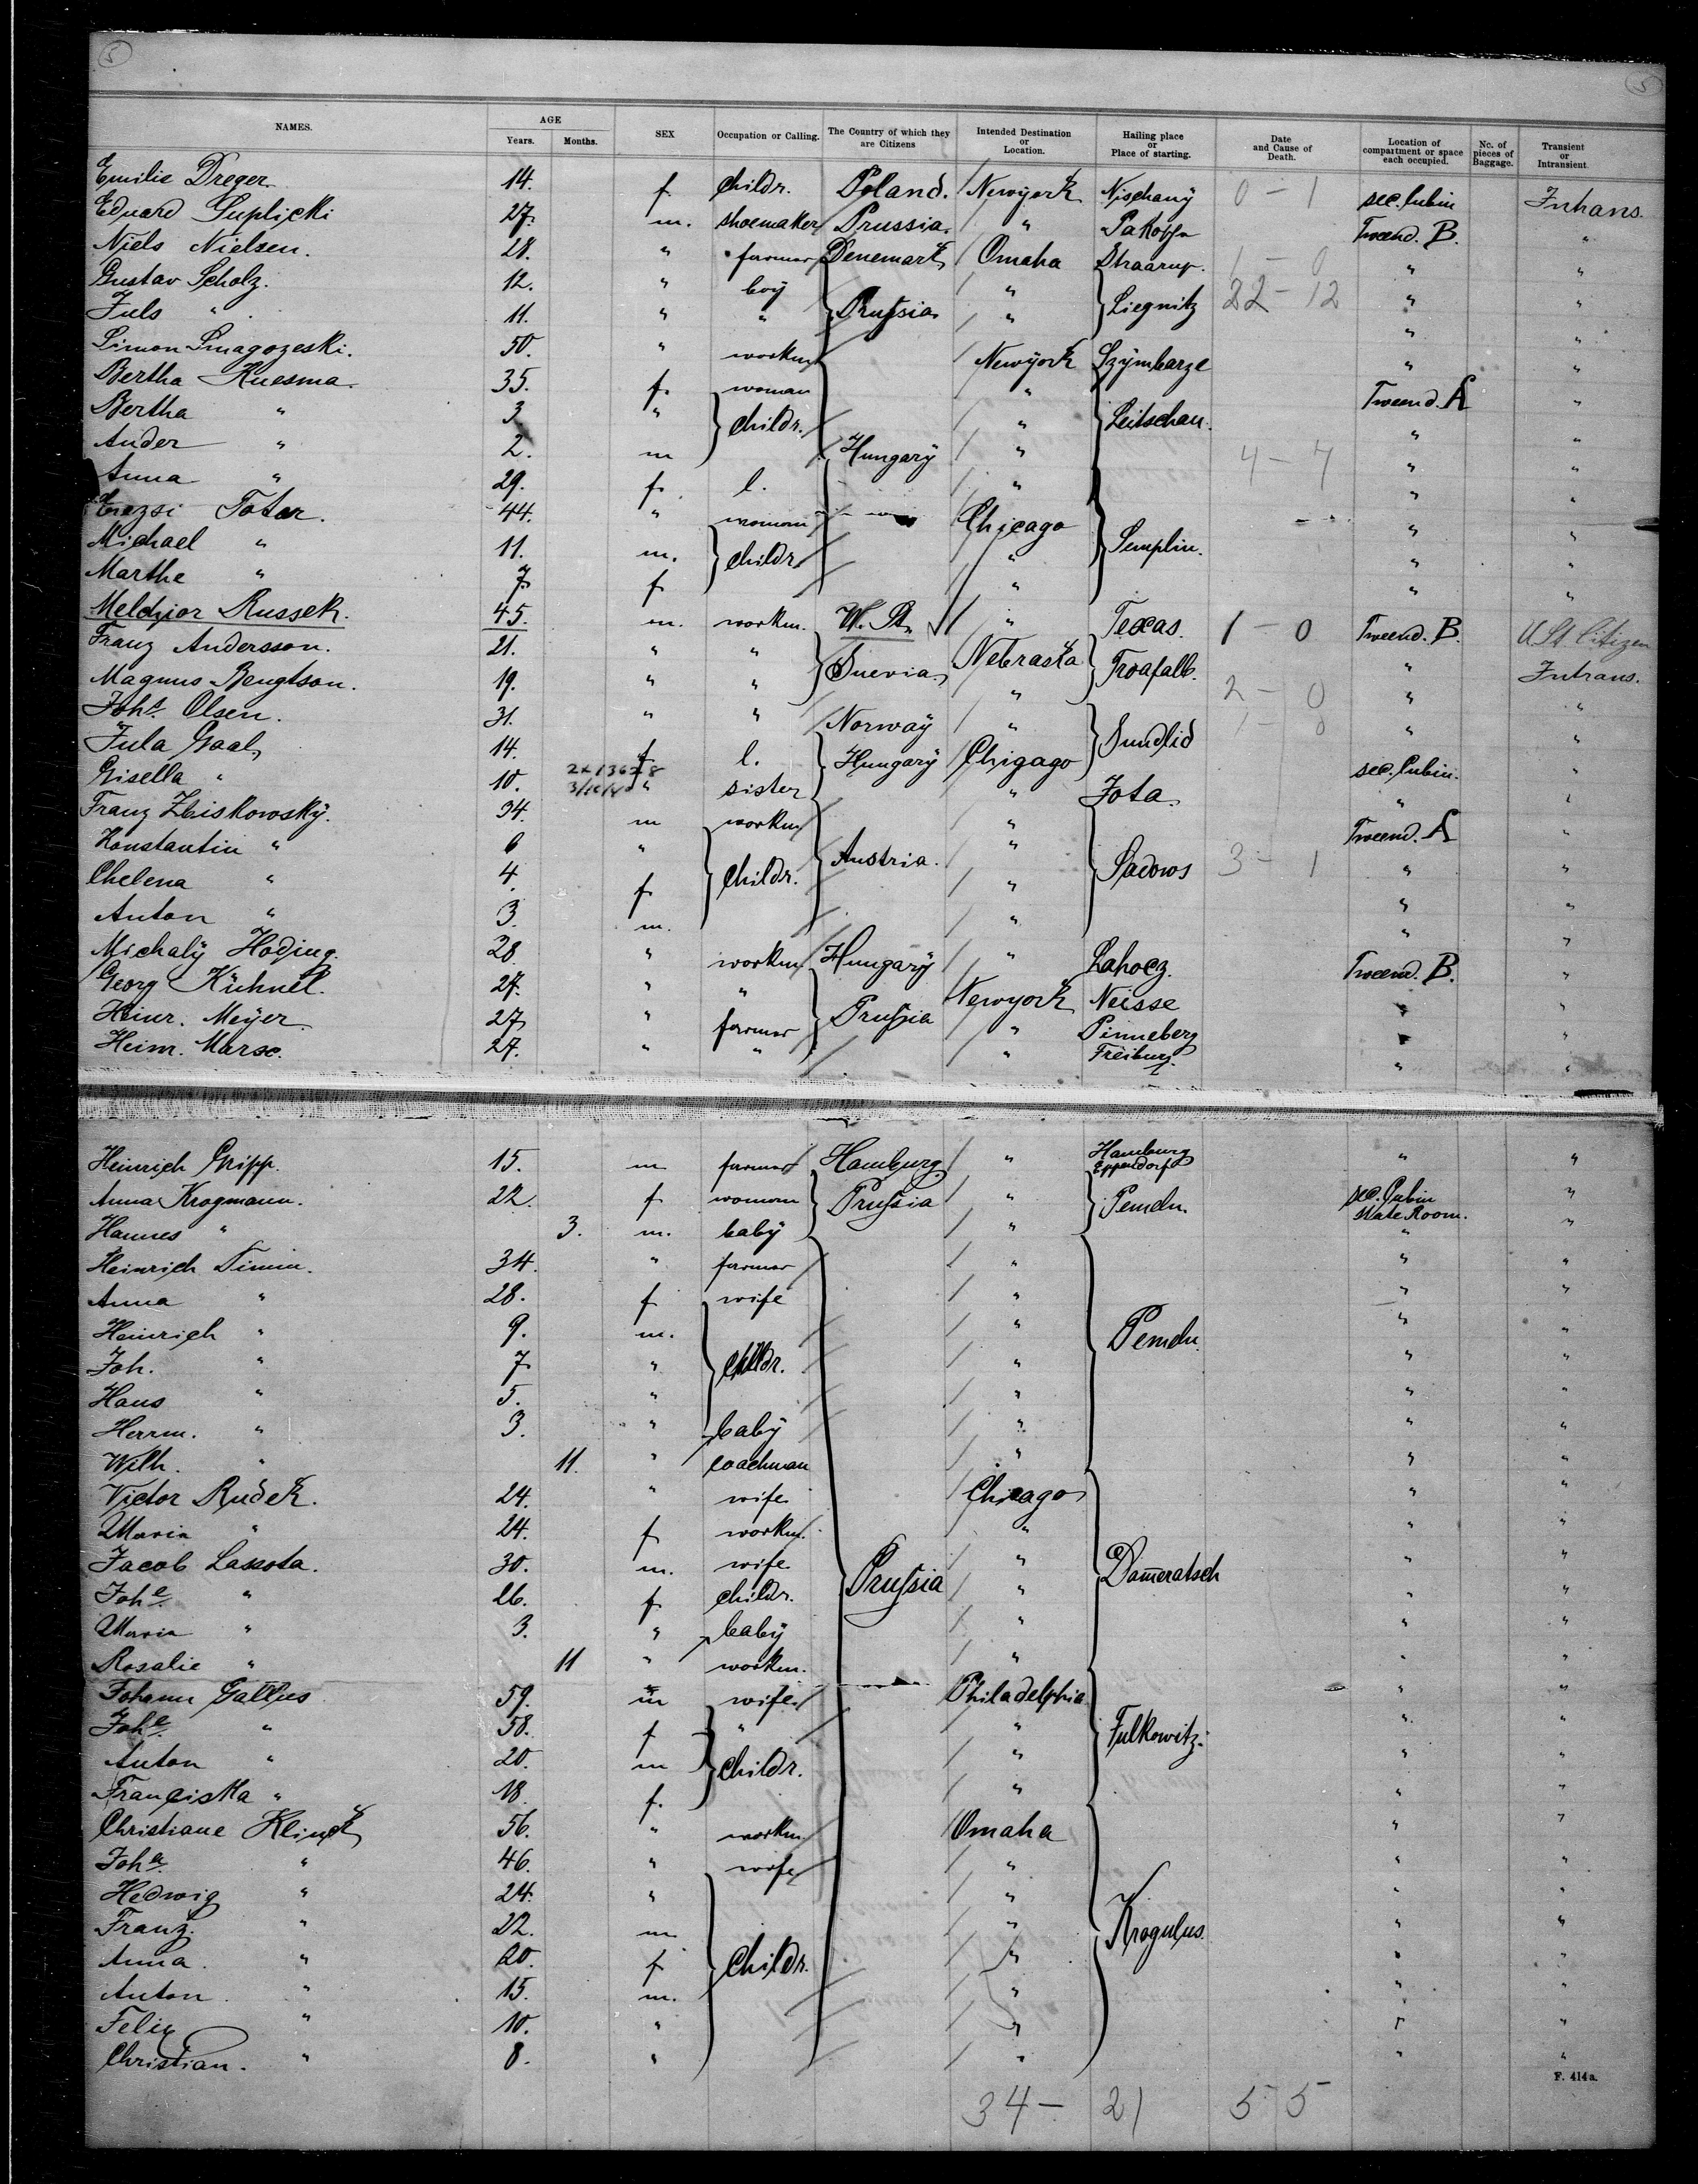 5 5
NAMES. AGE Years. Months. SEX Occupation or Calling. The Country of which they are Citizens Intended Destination or Location. Hailing place or Place of starting. Date and Cause of Death. Location of compartment or space each occupied. Nc. of pieces of Baggage. Transient or Intransient.
Emilie Dreger. 14. f. childr. Poland. / Newyork Nischany 0 - 1 sec. Cubin Intrans.
Eduard Suplicki 27. m. shoemaker Prussia. / " Pakosch Tweend. B. "
Niels Nielsen. 28. " farmer Denemark / Omaha Skaarup. 1 - 0 " "
Gustav Scholz. 12. " boy } Prussia / " } Liegnitz 22 - 12 " "
Juls " 11. " " / " " "
Simon Smagozeski. 50. " workm / Newyork Szymbarze " "
Bertha Kuesma. 35. f. woman / " } Leitschau. Tweend. A "
Bertha " 3 " } childr. / " " "
Ander " 2. m Hungary / " 4 - 4 " "
Anna " 29. f. l. / " " "
Erezsi Totar. 44. " woman / Chicago } Semplin. " "
Michael " 11. m. } childr. / " " "
Marthe " 7. f / " " "
Melchior Russek. 45. m. workm. W. St. / " Texas. 1 - 0 Tweend. B. U St Citizen
Franz Andersson. 21. " " } Suevia Nebraska } Troafalb. " Intrans.
Magnus Bengtson. 19. " " / " 2 - 0 " "
Joh.s Olsen. 31. " " Norway / " } Sundlid 1 - 0 " "
Jula Gaal 14. f l. } Hungary / Chigago sec. Cubin. "
Gisella " 10. 2x13628 3/10/40 " sister / " Jota. " "
Franz Zbiskowsky. 34. m workm / " Tweend. A "
Konstantin " 6 " } childr. } Austria. / " } Sadows 3 - 1 " "
Chelena " 4. f / " " "
Anton " 3. m. / " " "
Michaly Hoding. 28 " workm Hungary / " Lahocz. Tweend. B. "
Georg Kühnel. 27. " " } Prussia Newyork Neisse " "
Heinr. Meyer 27 " farmer / " Pinneberg " "
Heinr. Marsc. 27. " " / " Freiburg " "
Heinrich Gripp. 15. m farmer Hamburg / " Hamburg Eppendorf " "
Anna Krogmann. 22. f woman } Prussia / " } Pemeln. sec. Cubin "
State Room.
Hannes " 3. m. baby / " " "
Heinrich Timm. 34. " farmer / " " "
Anna " 28. f wife / " " "
Heinrich " 9. m. / " } Pemeln " "
Joh. " 7 " } childr. / " " "
Hans " 5. " / " " "
Herrm. " 3. " baby / " " "
Wilh. " 11. " coachman / " " "
Victor Rudek. 24. " wife Chicago " "
Maria " 24. f workm. " " "
Jacob Lassota. 30. m. wife } Prussia / " } Dom̄eratsch " "
Joh.e " 26. f childr. / " " "
Maria " 3. " baby / " " "
Rosalie " 11 " workm. / " " "
Johann Gallus 59. m wife / Philadelphia " "
Joh.e " 58. f " / " } Fulkowitz. " "
Anton " 20. m } childr. / " " "
Franciska " 18. f. / " " "
Christiane Klinck 56. " workm. / Omaha " "
Joh.a " 46. " wife / " " "
Hedwig " 24. " / " " "
Franz. " 22. m. / " } Krogulus. " "
Anna. " 20. f } childr. / " " "
Anton. " 15. m. / " " "
Felix " 10. " / " " "
Christian. " 8. " / " " "
F. 414a.
34 - 21 5 5